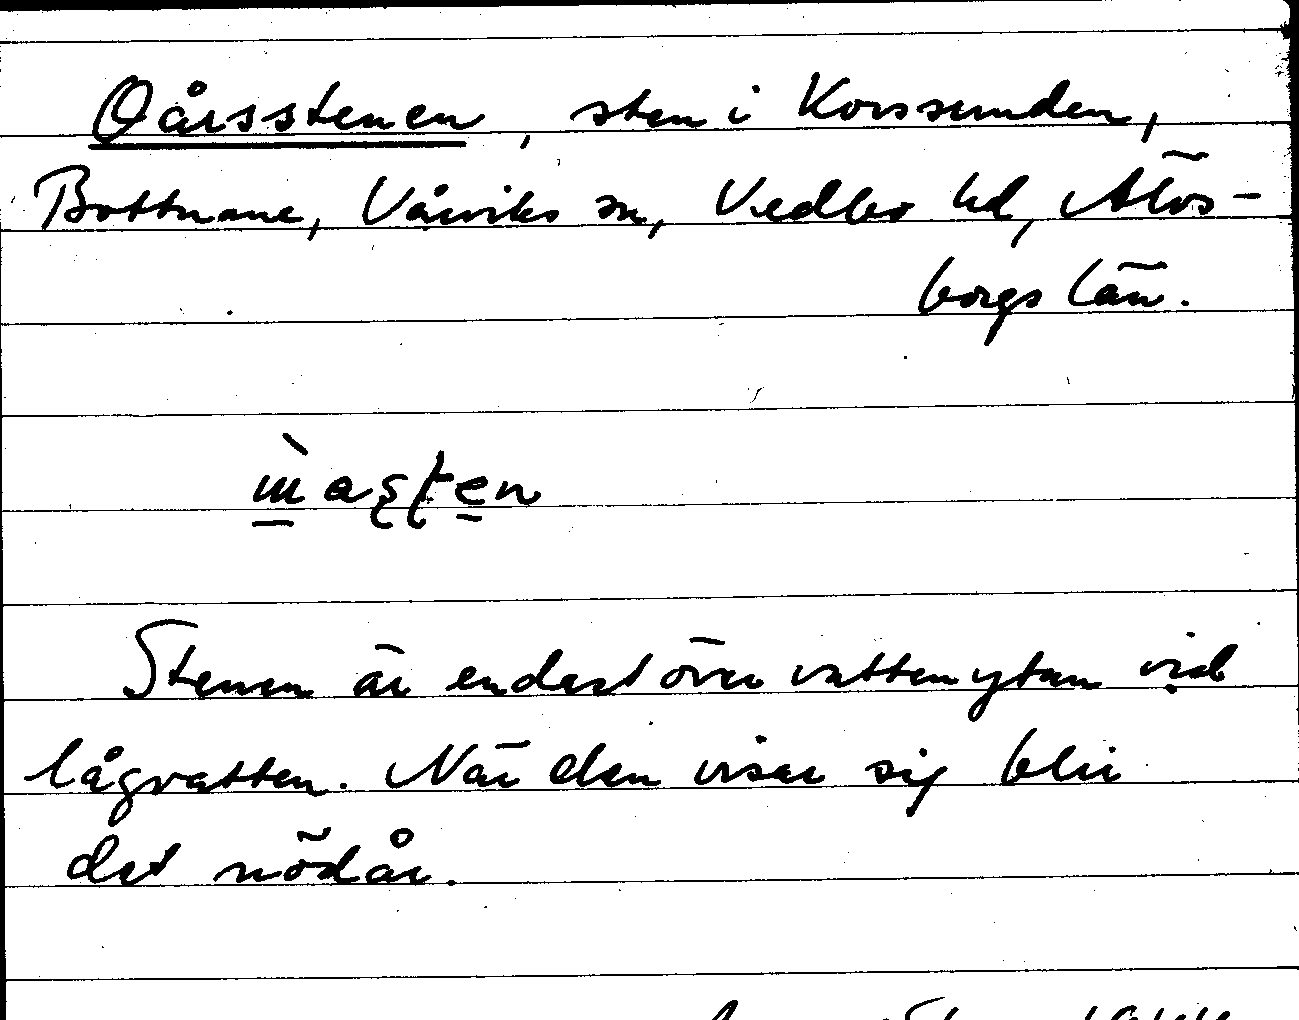 Oårsstenen, sten i Korssunden,
Bottnane, Vårviks sn, Vedbo hd, Älvs-
borgs län.
Stenen är endast över vattenytan vid
lågvatten. När den visar sig blir
det nödår.